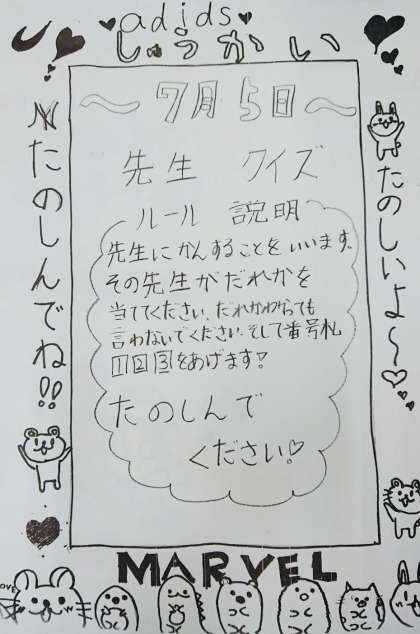 adids
しゅうかい
〜7月5日〜
先生 クイズ
ルール 説明
先生にかんすることをいいます。
その先生がだれかを
当ててください。だれかわかっても
言わないでください。そして番号札
1 2 3 をあげます!
たのしんで
ください!
たのしんでね!!
たのしいよ〜
MARVEL